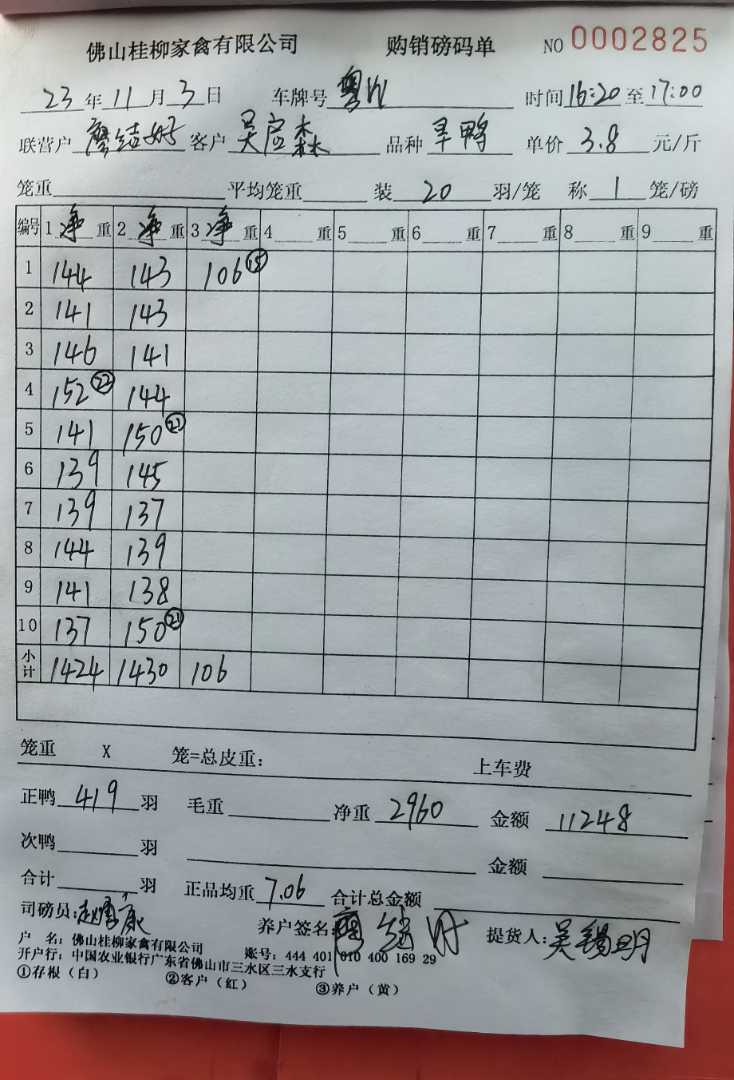 佛山桂柳家禽有限公司 购销磅码单 NO 0002825
23年11月3日 车牌号 粤W 时间16:20至17:00
联营户 廖结好 客户 吴启森 品种 旱鸭 单价 3.8 元/斤
笼重 平均笼重 装 20 羽/笼 称 1 笼/磅
编号 1 净 重 2 净 重 3 净 重 4 重 5 重 6 重 7 重 8 重 9 重
1 144 143 106⑮
2 141 143
3 146 141
4 152㉒ 144
5 141 150㉑
6 139 145
7 139 137
8 144 139
9 141 138
10 137 150㉑
小计 1424 1430 106
笼重 X 笼=总皮重： 上车费
正鸭 419 羽 毛重 净重 2960 金额 11248
次鸭 羽 金额
合计 羽 正品均重 7.06 合计总金额
司磅员： 养户签名 廖结好 提货人：吴锡明
户 名：佛山桂柳家禽有限公司
开户行：中国农业银行广东省佛山市三水区三水支行 账号：444 401 010 400 169 29
①存根（白） ②客户（红） ③养户（黄）